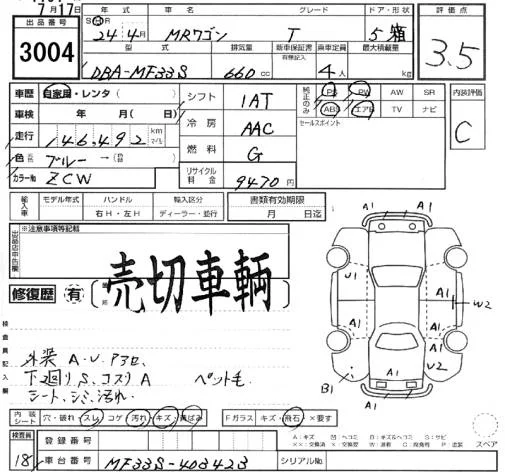 7月17日
出品番号
3004
年式 グレード ドア・形状
S H 24年4月 MRワゴン T 5 箱
型式 排気量 新車保証書 有無記入 乗車定員 最大積載量
DBA-MF33S 660cc 4人 kg
評価点
3.5
車歴 自家用・レンタ( )
車検 年 月( 日)
走行 146,492 km マイル
色 元色 ブルー →(色替 )
カラー№ ZCW
シフト 1AT
冷房 AAC
燃料 G
リサイクル料金 9470円
純正のみ PS PW AW SR
ABS エアB TV ナビ
セールスポイント
内装評価
C
輸入車 モデル年式 ハンドル 輸入区分
右H・左H ディーラー・並行
書類有効期限
月 日迄
出品店申告欄
※注意事項等記載
売切車輌
修復歴 有
検査員記入欄
外装 A.U.アタセ.
下廻りS.コスリA ペット毛
シート.シミ.汚れ.
A1 A1 U1 A1 W2 A1 U2 B1 A1
内装シート 穴・破れ・スレ コゲ 汚れ・キズ・黄ばみ Fガラス キズ・飛石 ×要す
検査員
18
登録番号
車台番号 MF33S-403423 シリアル№
A:キズ U:ヘコミ B:キズ&ヘコミ S:サビ
××:交換済 X:交換 W:波有 C:腐食 P:塗装
スペア